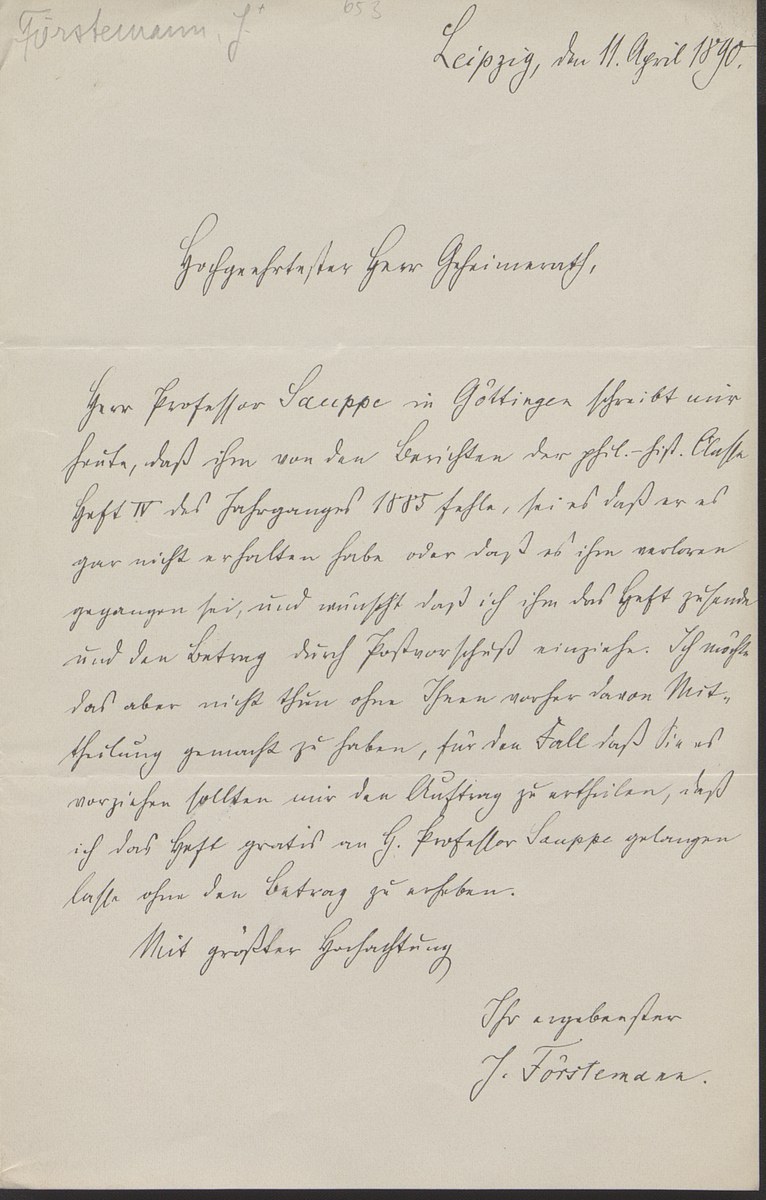 Förstemann, J.
653
Leipzig, den 11. April 1890.
Hochgeehrtester Herr Geheimerath,
Herr Professor Sauppe in Göttingen schreibt mir
heute, daß ihm von den Berichten der phil.-hist. Classe
Heft IV des Jahrganges 1885 fehle, sei es daß er es
gar nicht erhalten habe oder daß es ihm verloren
gegangen sei, und wünscht daß ich ihm das Heft zusende
und den Betrag durch Postvorschuß einziehe. Ich möchte
das aber nicht thun ohne Ihnen vorher davon Mit-
theilung gemacht zu haben, für den Fall daß Sie es
vorziehen sollten mir den Auftrag zu ertheilen, daß
ich das Heft gratis an H. Professor Sauppe gelangen
lasse ohne den Betrag zu erheben.
Mit größter Hochachtung
Ihr ergebenster
J. Förstemann.